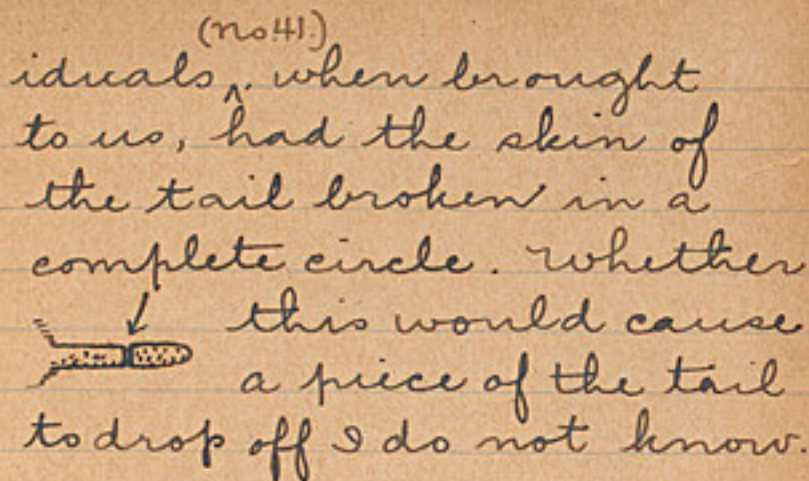 (no. 41.)
iduals ^, when brought
to us, had the skin of
the tail broken in a
complete circle. Whether
this would cause
a piece of the tail
to drop off I do not know.